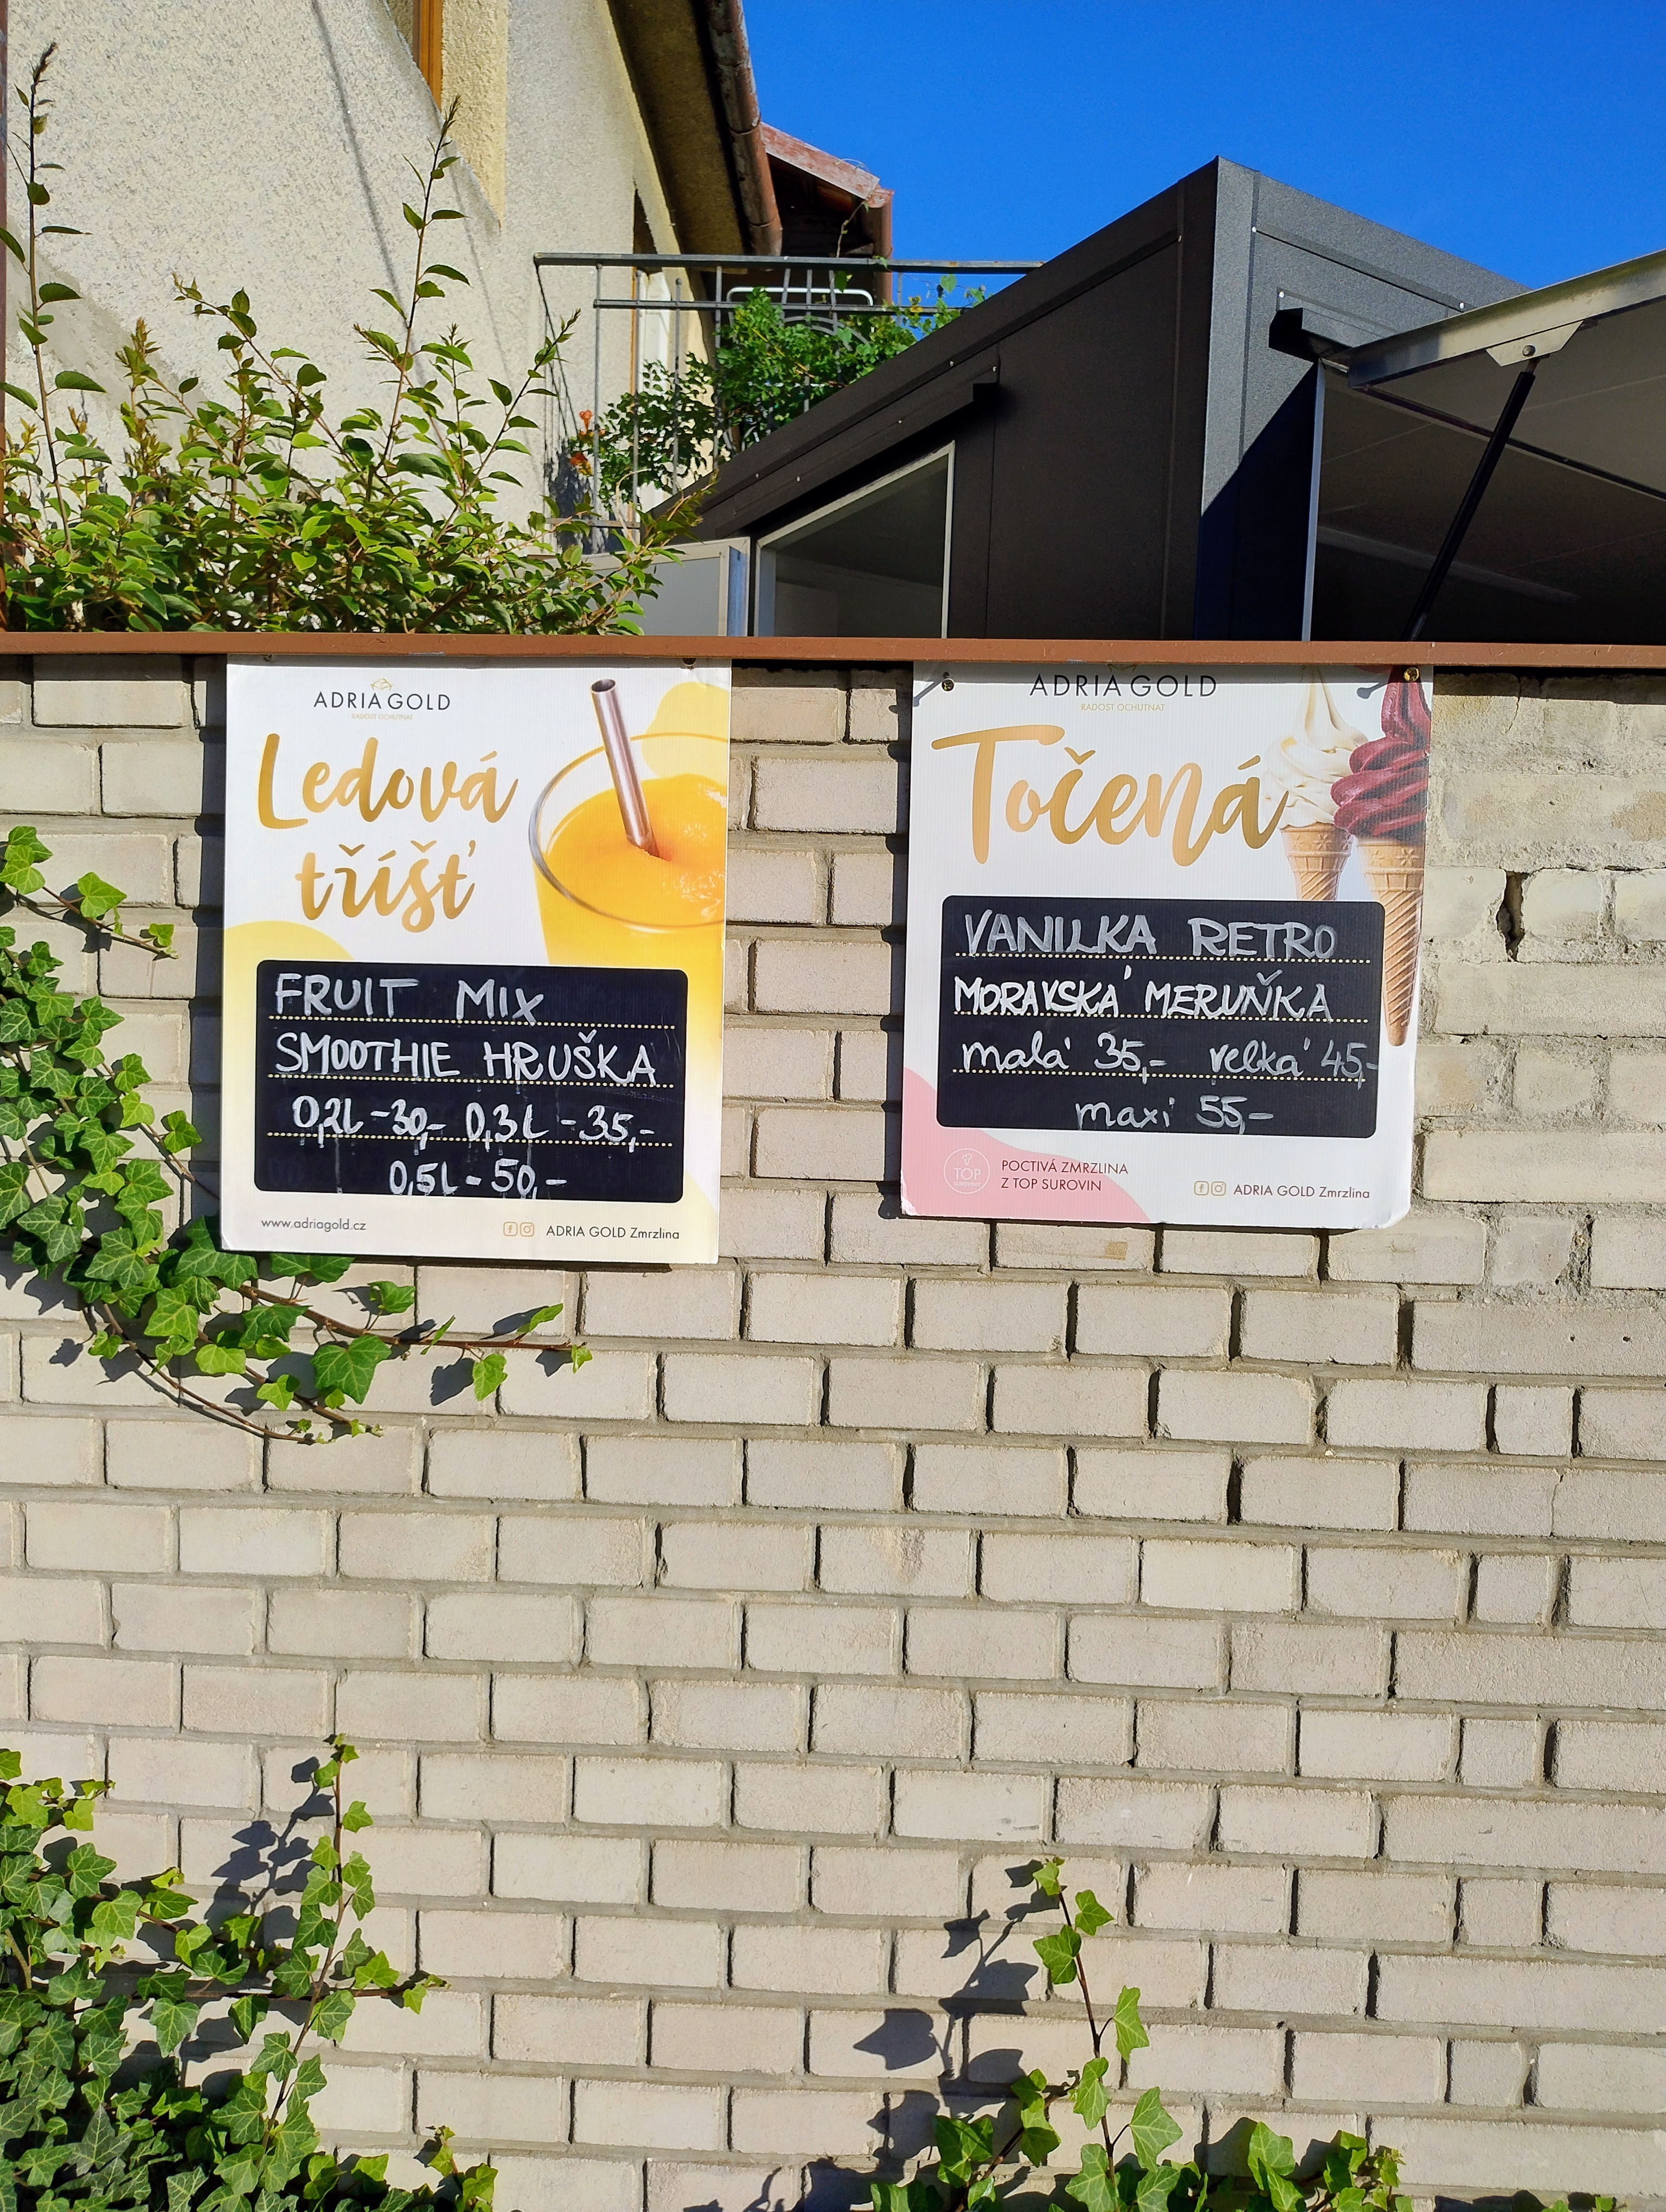 ADRIA GOLD
RADOST OCHUTNAT
Ledová
tříšť
FRUIT MIX
SMOOTHIE HRUŠKA
0,2L -30,- 0,3L -35,-
0,5L - 50,-
www.adriagold.cz
ADRIA GOLD Zmrzlina
ADRIA GOLD
RADOST OCHUTNAT
Točená
VANILKA RETRO
MORAVSKÁ MERUŇKA
malá 35,- velká 45,-
maxi 55,-
TOP
SUROVINY
POCTIVÁ ZMRZLINA
Z TOP SUROVIN
ADRIA GOLD Zmrzlina